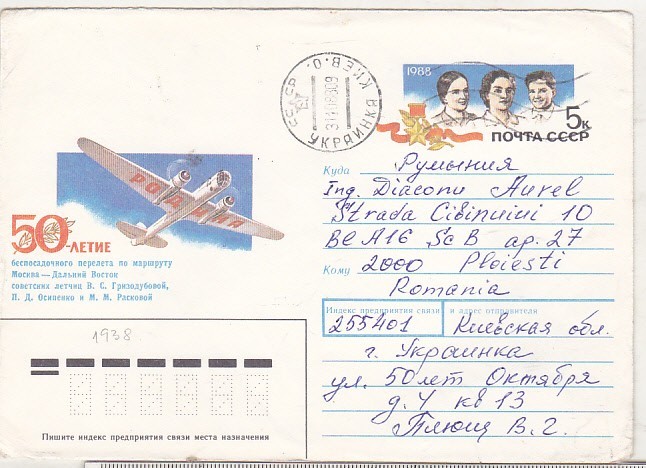 СССР
КИЕВ.О.
УКРАИНКА
1988
5к
ПОЧТА СССР
РОДИНА
50-ЛЕТИЕ
беспосадочного перелета по маршруту
Москва—Дальний Восток
советских летчиц В. С. Гризодубовой,
П. Д. Осипенко и М. М. Расковой
1938
Пишите индекс предприятия связи места назначения
Куда Румыния
Ing. Diaconu Aurel
Strada Cibinului 10
Bl A16 Sc B ap. 27
Кому 2000 Ploiesti
Romania
Индекс предприятия связи и адрес отправителя
255401 Киевская обл.
г. Украинка
ул. 50 лет Октября
д. 4 кв 13
Плющ В. Г.